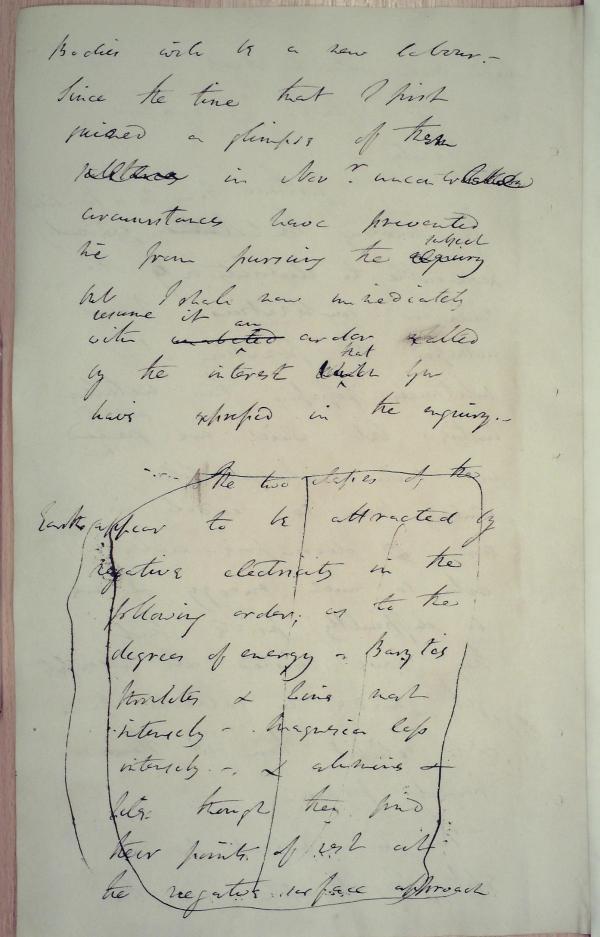 Bodies will be a new labour. -
Since the time that I first
gained a glimpse of them
in Novr.
circumstances have prevented
me from pursuing the enquiry
subject
but I shall now immediately
resume it
with unabated an ardor exalted
by the interest which that you
have expressed in the enquiry. -
The two classes of the
Earths appear to be attracted by
negative electricity in the
following order; as to the
degrees of energy - Barytes
Strontites & lime most
intensely - Magnesia less
intensely. -, & alumine &
silex though they find
their points of rest at
the negative surface approach